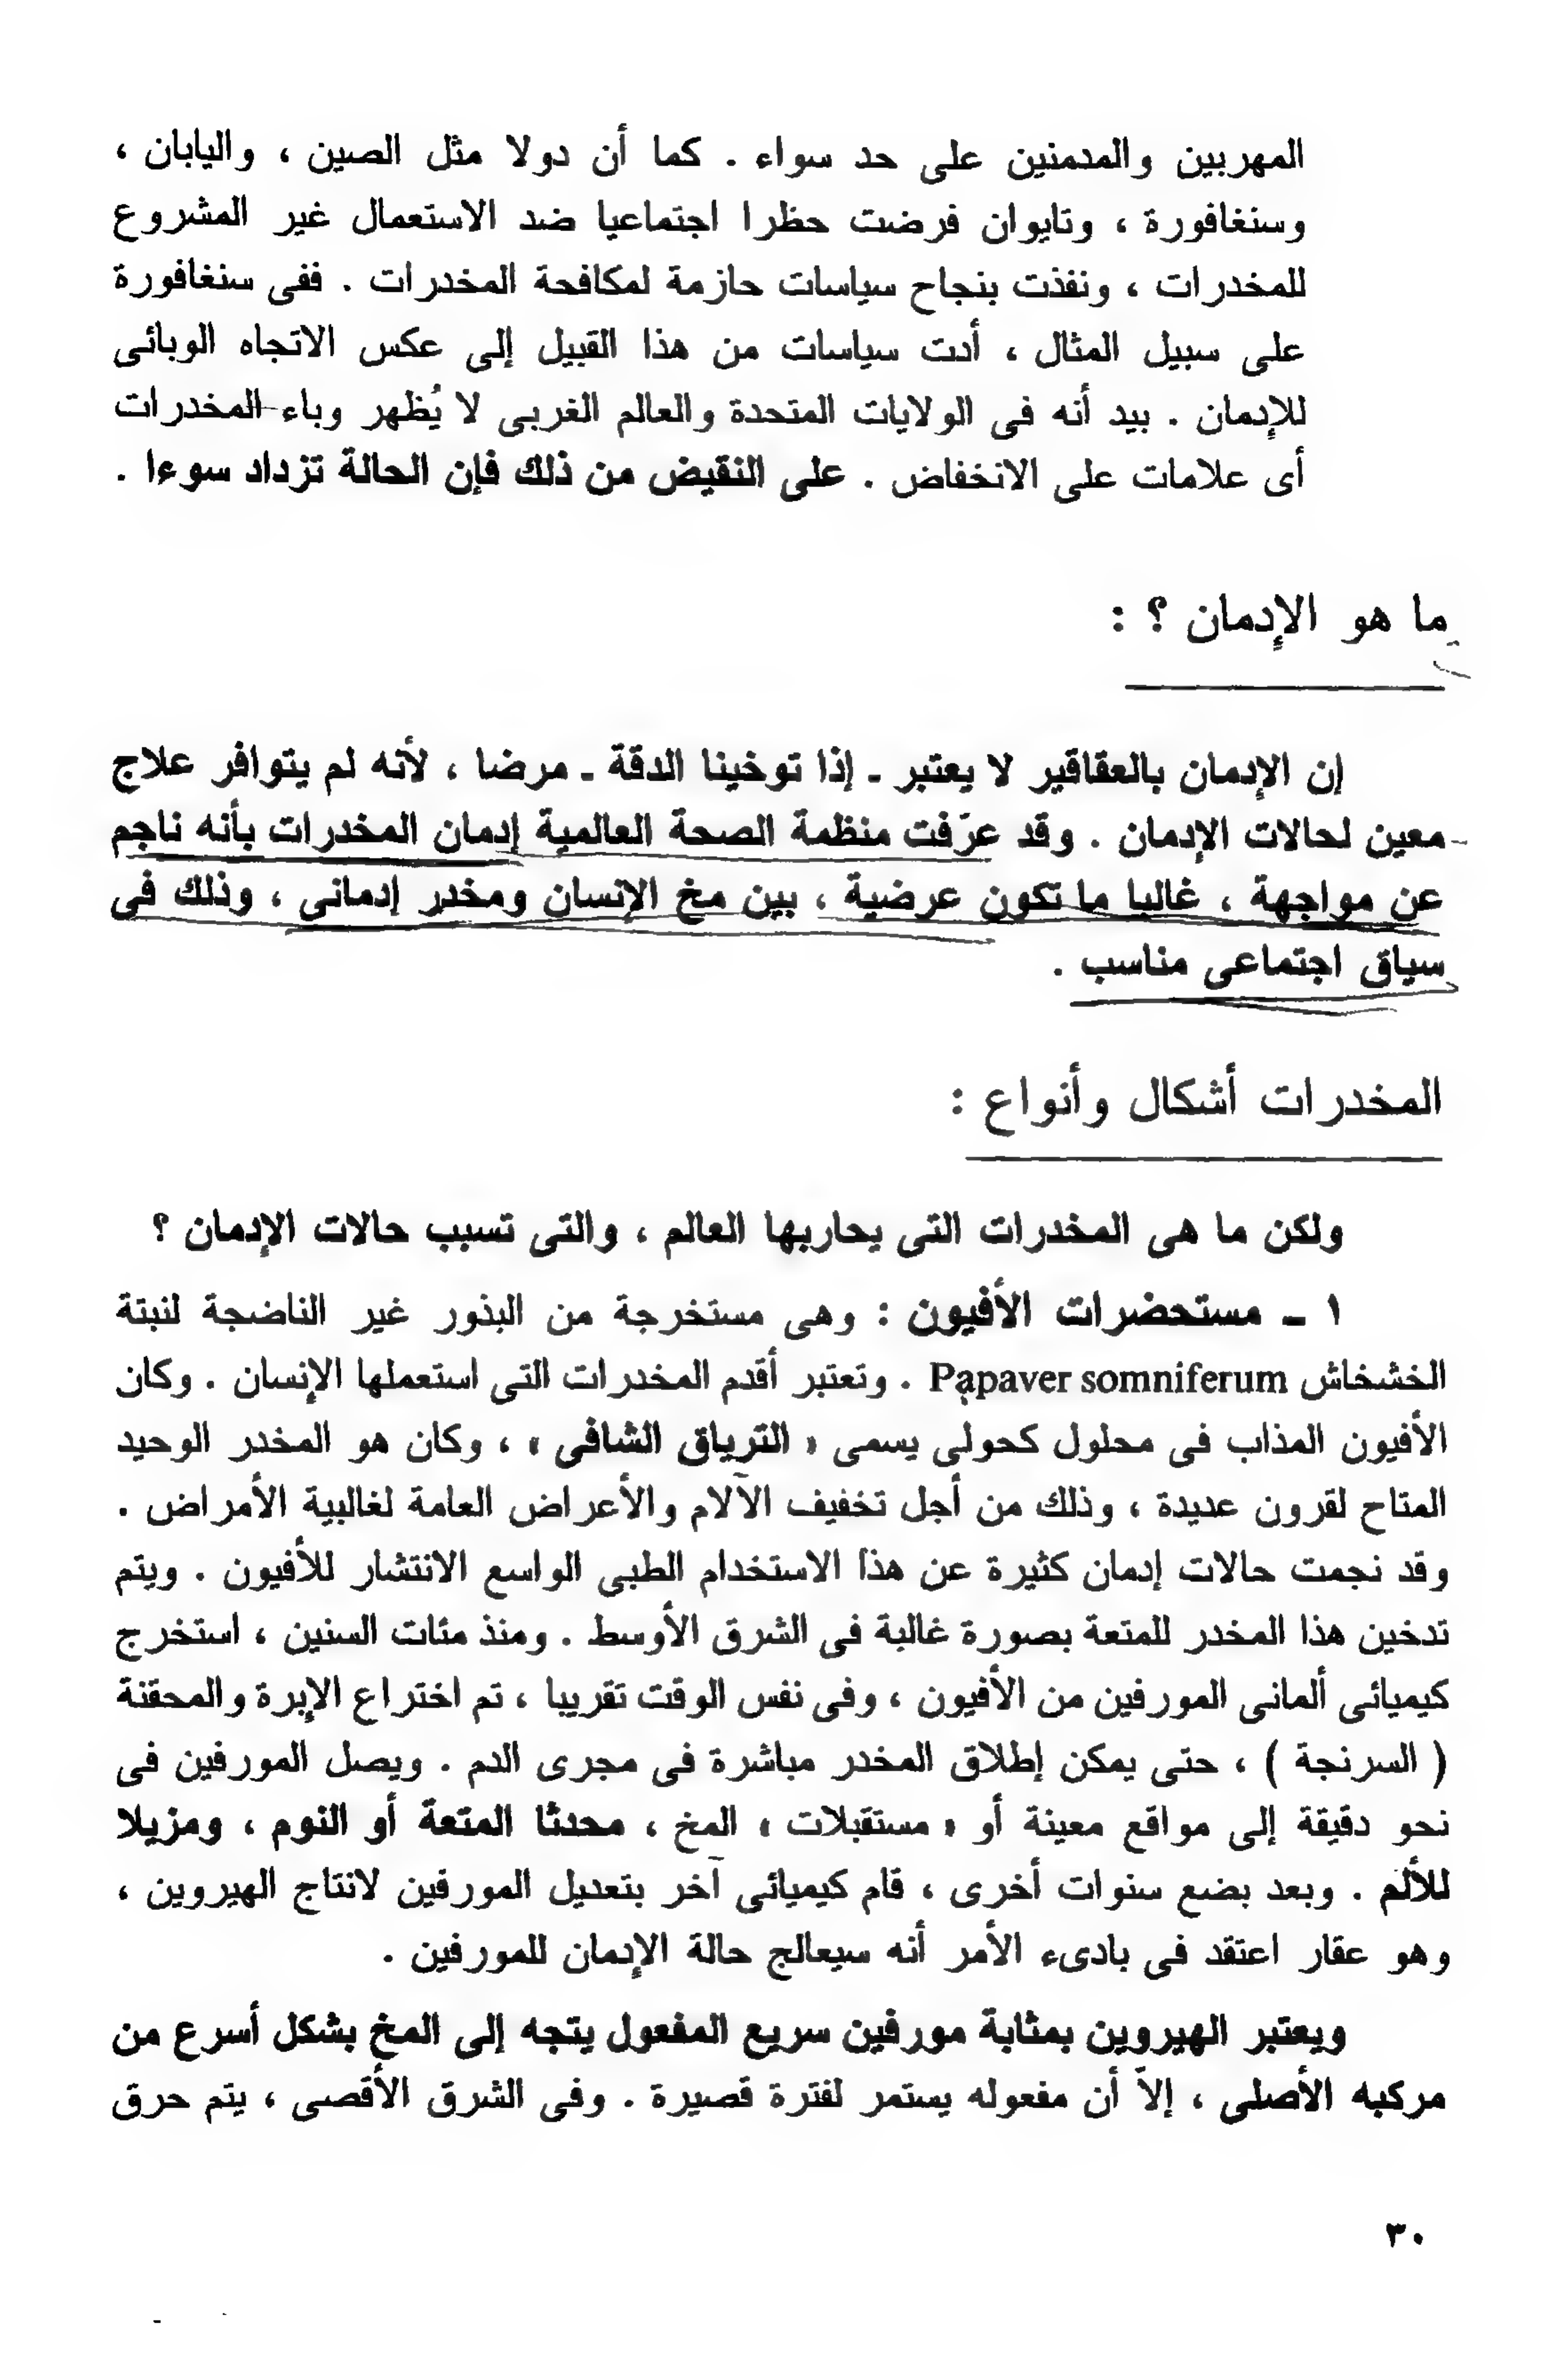 المهربين والمدمنين على حد سواء . كما أن دولا مثل الصين ، واليابان ،
وسنغافورة ، وتايوان فرضت حظرا اجتماعيا ضد الاستعمال غير المشروع
للمخدرات ، ونفذت بنجاح سياسات حازمة لمكافحة المخدرات . ففى سنغافورة
على سبيل المثال ، أدت سياسات من هذا القبيل إلى عكس الاتجاه الوبائى
للإدمان . بيد أنه فى الولايات المتحدة والعالم الغربى لا يُظهر وباء المخدرات
أى علامات على الانخفاض . على النقيض من ذلك فإن الحالة تزداد سوءا .
ما هو الإدمان ؟ :
إن الإدمان بالعقاقير لا يعتبر ـ إذا توخينا الدقة ـ مرضا ، لأنه لم يتوافر علاج
معين لحالات الإدمان . وقد عرّفت منظمة الصحة العالمية إدمان المخدرات بأنه ناجم
عن مواجهة ، غالبا ما تكون عرضية ، بين مخ الإنسان ومخدر إدمانى ، وذلك فى
سياق اجتماعى مناسب .
المخدرات أشكال وأنواع :
ولكن ما هى المخدرات التى يحاربها العالم ، والتى تسبب حالات الإدمان ؟
١ ـ مستحضرات الأفيون : وهى مستخرجة من البذور غير الناضجة لنبتة
الخشخاش Papaver somniferum . وتعتبر أقدم المخدرات التى استعملها الإنسان . وكان
الأفيون المذاب فى محلول كحولى يسمى « الترياق الشافى » ، وكان هو المخدر الوحيد
المتاح لقرون عديدة ، وذلك من أجل تخفيف الآلام والأعراض العامة لغالبية الأمراض .
وقد نجمت حالات إدمان كثيرة عن هذا الاستخدام الطبى الواسع الانتشار للأفيون . ويتم
تدخين هذا المخدر للمتعة بصورة غالبة فى الشرق الأوسط . ومنذ مئات السنين ، استخرج
كيميائى ألمانى المورفين من الأفيون ، وفى نفس الوقت تقريبا ، تم اختراع الإبرة والمحقنة
( السرنجة ) ، حتى يمكن إطلاق المخدر مباشرة فى مجرى الدم . ويصل المورفين فى
نحو دقيقة إلى مواقع معينة أو « مستقبلات » المخ ، محدثا المتعة أو النوم ، ومزيلا
للألم . وبعد بضع سنوات أخرى ، قام كيميائى آخر بتعديل المورفين لانتاج الهيروين ،
وهو عقار اعتقد فى بادىء الأمر أنه سيعالج حالة الإدمان للمورفين .
ويعتبر الهيروين بمثابة مورفين سريع المفعول يتجه إلى المخ بشكل أسرع من
مركبه الأصلى ، إلاّ أن مفعوله يستمر لفترة قصيرة . وفى الشرق الأقصى ، يتم حرق
٣٠